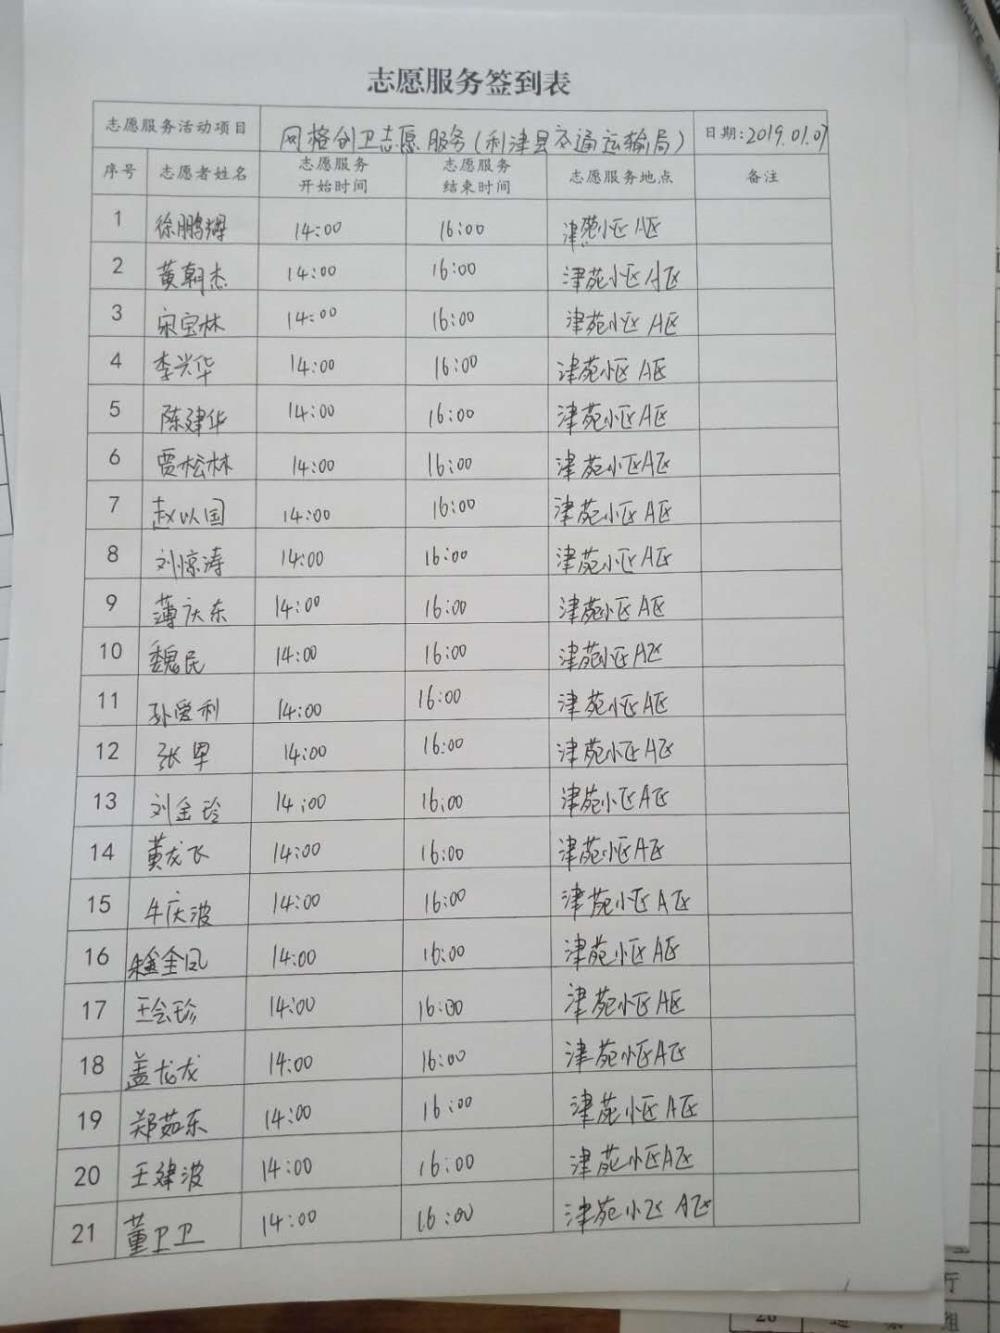 志愿服务签到表
志愿服务活动项目 网格创卫志愿服务(利津县交通运输局) 日期:2019.01.07
序号 志愿者姓名 志愿服务开始时间 志愿服务结束时间 志愿服务地点 备注
1 徐鹏 14:00 16:00 津苑小区A区
2 黄朝杰 14:00 16:00 津苑小区A区
3 宋宝林 14:00 16:00 津苑小区A区
4 李兴华 14:00 16:00 津苑小区A区
5 陈建华 14:00 16:00 津苑小区A区
6 贾松林 14:00 16:00 津苑小区A区
7 赵以国 14:00 16:00 津苑小区A区
8 刘惊涛 14:00 16:00 津苑小区A区
9 薄庆东 14:00 16:00 津苑小区A区
10 魏民 14:00 16:00 津苑小区A区
11 孙爱利 14:00 16:00 津苑小区A区
12 张 14:00 16:00 津苑小区A区
13 刘金玲 14:00 16:00 津苑小区A区
14 黄龙飞 14:00 16:00 津苑小区A区
15 牛庆波 14:00 16:00 津苑小区A区
16 金凤 14:00 16:00 津苑小区A区
17 王会珍 14:00 16:00 津苑小区A区
18 盖龙龙 14:00 16:00 津苑小区A区
19 郑茹东 14:00 16:00 津苑小区A区
20 王建波 14:00 16:00 津苑小区A区
21 董卫卫 14:00 16:00 津苑小区A区